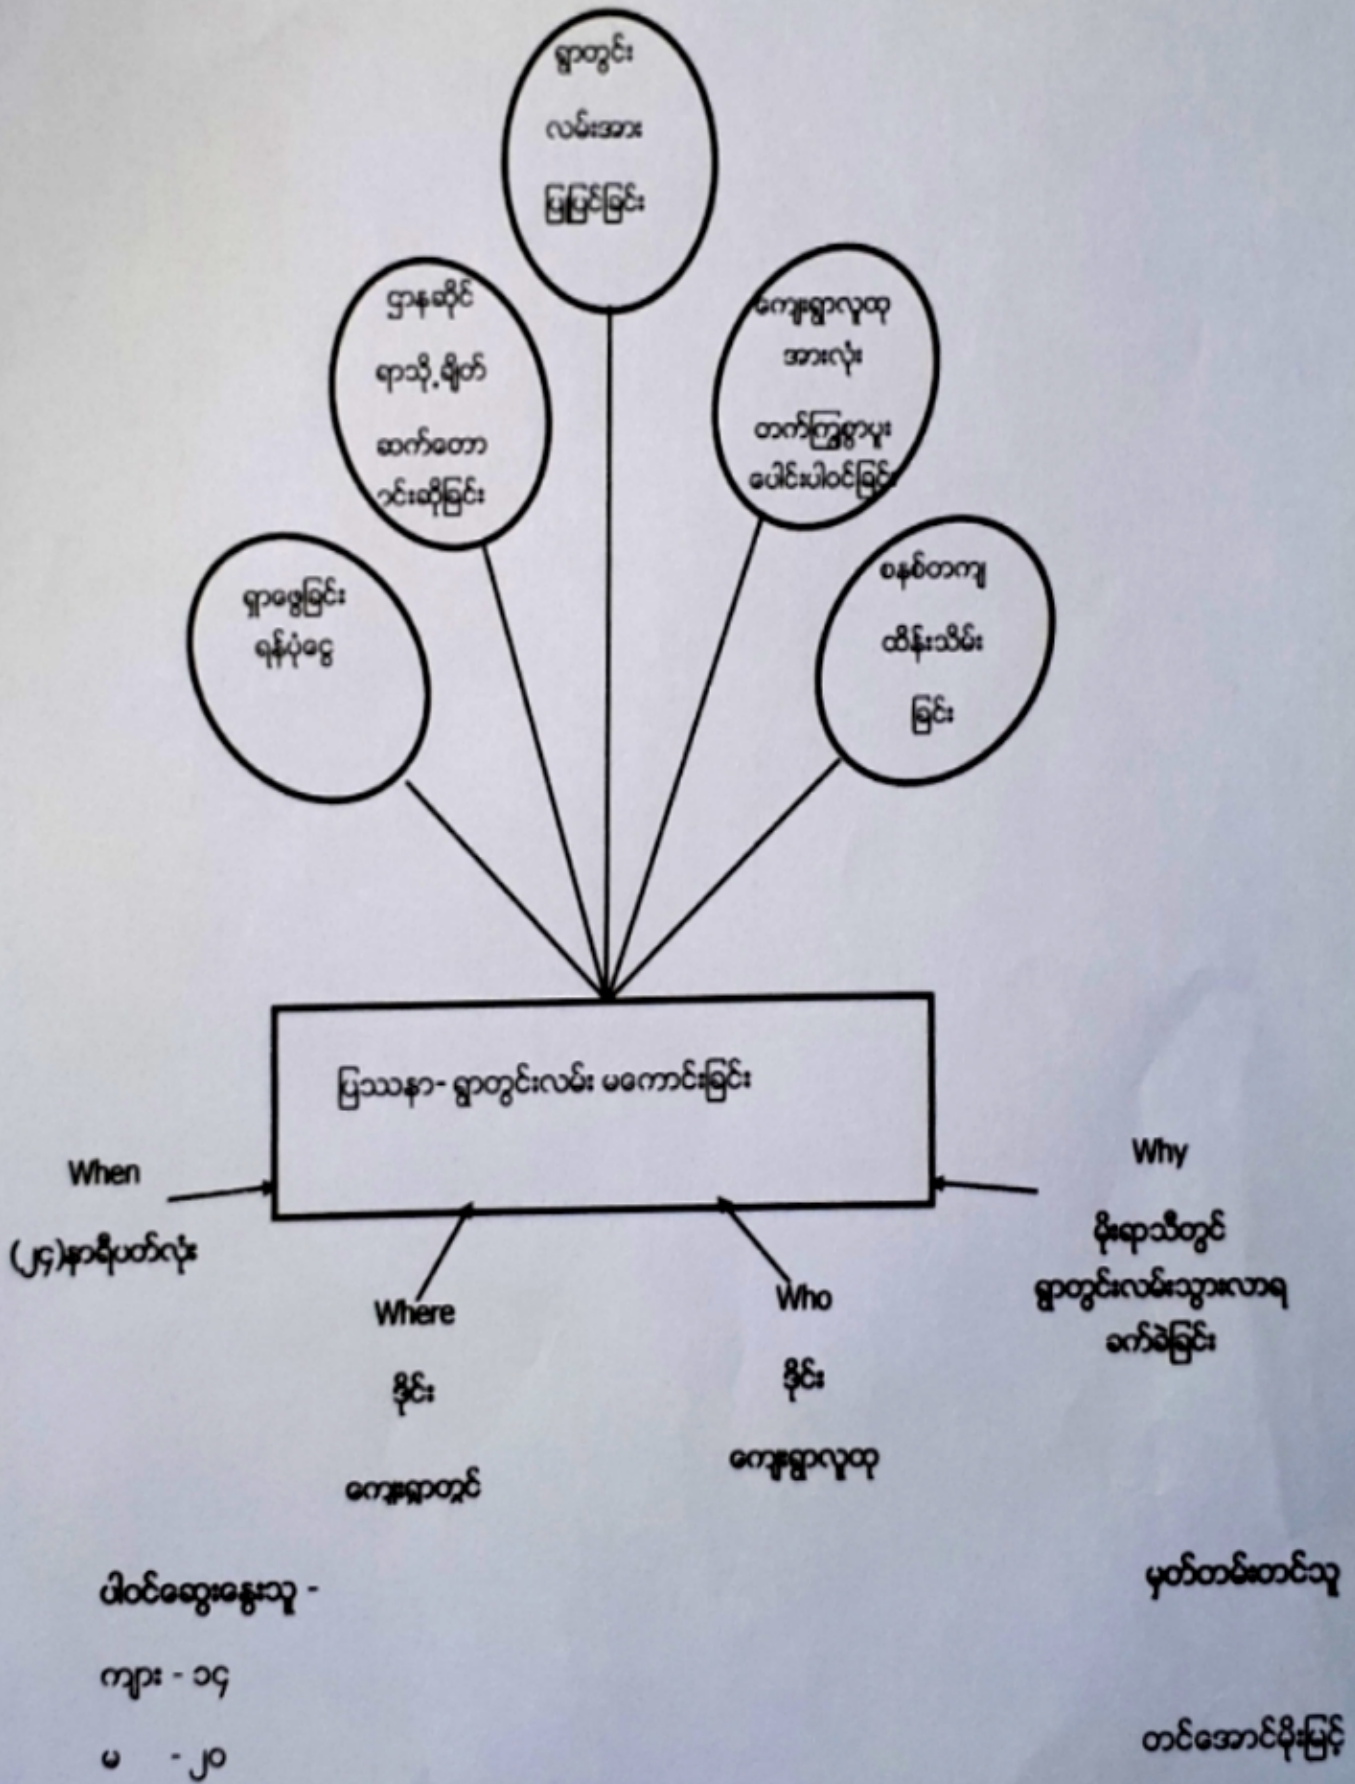 ရွာတွင်း
လမ်းအား
ပြုပြင်ခြင်း
ဌာနဆိုင်
ရာသို့ချိတ်
ဆက်တော
ာင်းဆိုခြင်း
ကျေးရွာလူထု
အားလုံး
တက်ကြွစွာပူး
ပေါင်းပါဝင်ခြင်း
ရှာဖွေခြင်း
ရန်ပုံငွေ
စနစ်တကျ
ထိန်းသိမ်း
ခြင်း
ပြဿနာ- ရွာတွင်းလမ်း မကောင်းခြင်း
When
(၂၄)နာရီပတ်လုံး
Where
ဒိုင်း
ကျေးရွာတွင်
Who
ဒိုင်း
ကျေးရွာလူထု
Why
မိုးရာသီတွင်
ရွာတွင်းလမ်းသွားလာရ
ခက်ခဲခြင်း
ပါဝင်ဆွေးနွေးသူ -
ကျား - ၁၄
မ - ၂၀
မှတ်တမ်းတင်သူ
တင်အောင်မိုးမြင့်